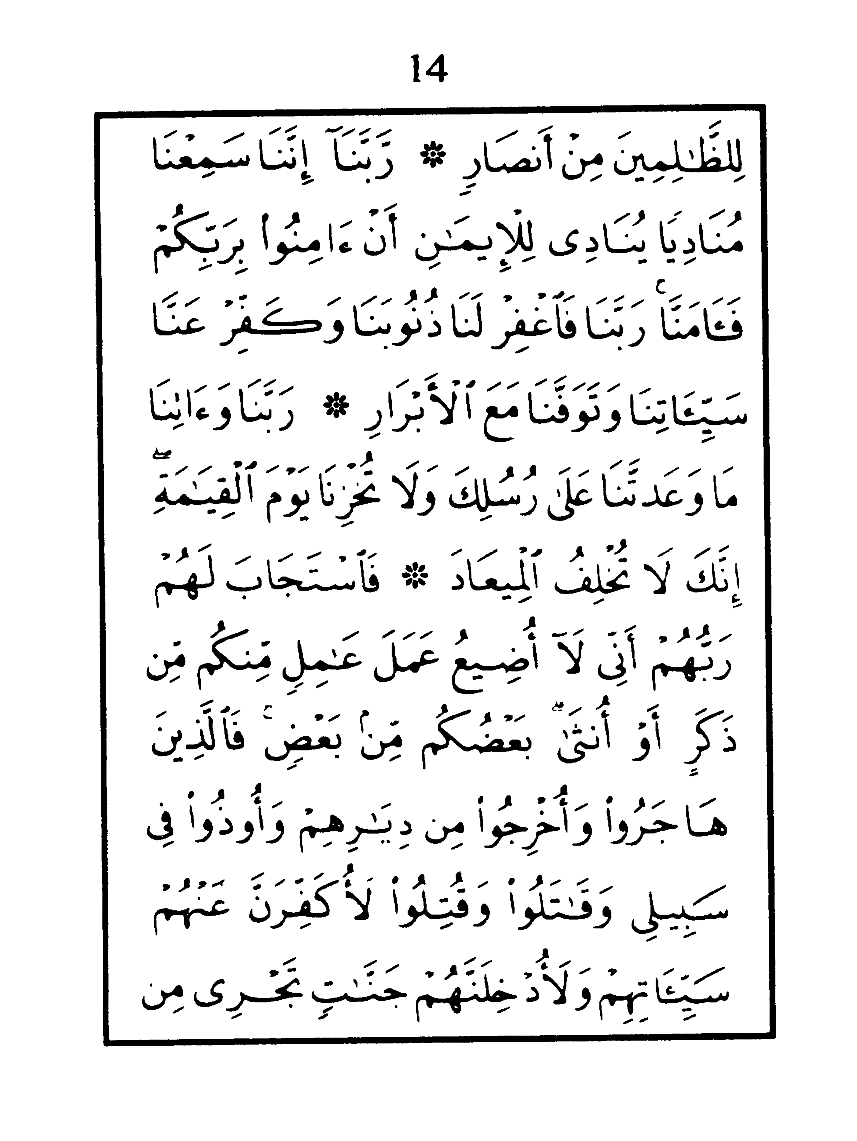 14
لِلظَّـٰلِمِينَ مِنْ أَنصَارٍ ۞ رَّبَّنَآ إِنَّنَا سَمِعْنَا
مُنَادِيًا يُنَادِى لِلْإِيمَـٰنِ أَنْ ءَامِنُوا۟ بِرَبِّكُمْ
فَـَٔامَنَّا ۚ رَبَّنَا فَٱغْفِرْ لَنَا ذُنُوبَنَا وَكَفِّرْ عَنَّا
سَيِّـَٔاتِنَا وَتَوَفَّنَا مَعَ ٱلْأَبْرَارِ ۞ رَبَّنَا وَءَاتِنَا
مَا وَعَدتَّنَا عَلَىٰ رُسُلِكَ وَلَا تُخْزِنَا يَوْمَ ٱلْقِيَـٰمَةِ ۖ
إِنَّكَ لَا تُخْلِفُ ٱلْمِيعَادَ ۞ فَٱسْتَجَابَ لَهُمْ
رَبُّهُمْ أَنِّى لَآ أُضِيعُ عَمَلَ عَـٰمِلٍ مِّنكُم مِّن
ذَكَرٍ أَوْ أُنثَىٰ ۖ بَعْضُكُم مِّنۢ بَعْضٍ ۚ فَٱلَّذِينَ
هَاجَرُوا۟ وَأُخْرِجُوا۟ مِن دِيَـٰرِهِمْ وَأُوذُوا۟ فِى
سَبِيلِى وَقَـٰتَلُوا۟ وَقُتِلُوا۟ لَأُكَفِّرَنَّ عَنْهُمْ
سَيِّـَٔاتِهِمْ وَلَأُدْخِلَنَّهُمْ جَنَّـٰتٍ تَجْرِى مِن